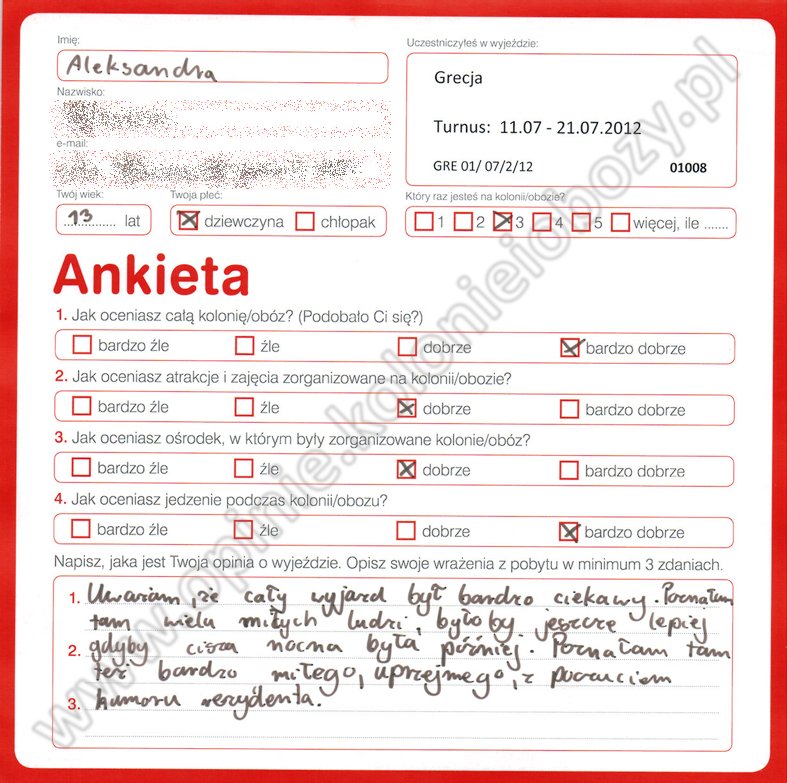 Imię:
Aleksandra
Nazwisko:
e-mail:
Twój wiek:
13 lat
Twoja płeć:
dziewczyna chłopak
Uczestniczyłeś w wyjeździe:
Grecja
Turnus: 11.07 - 21.07.2012
GRE 01/ 07/2/12 01008
Który raz jesteś na kolonii/obozie?
1 2 3 4 5 więcej, ile .......
Ankieta
1. Jak oceniasz całą kolonię/obóz? (Podobało Ci się?)
bardzo źle źle dobrze bardzo dobrze
2. Jak oceniasz atrakcje i zajęcia zorganizowane na kolonii/obozie?
bardzo źle źle dobrze bardzo dobrze
3. Jak oceniasz ośrodek, w którym były zorganizowane kolonie/obóz?
bardzo źle źle dobrze bardzo dobrze
4. Jak oceniasz jedzenie podczas kolonii/obozu?
bardzo źle źle dobrze bardzo dobrze
Napisz, jaka jest Twoja opinia o wyjeździe. Opisz swoje wrażenia z pobytu w minimum 3 zdaniach.
1. Uważam, że cały wyjazd był bardzo ciekawy. Poznałam
tam wielu miłych ludzi, byłoby jeszcze lepiej
2. gdyby cisza nocna była później. Poznałam tam
też bardzo miłego, uprzejmego, z poczuciem
3. humoru rezydenta.
www.opinie.kolonieiobozy.pl